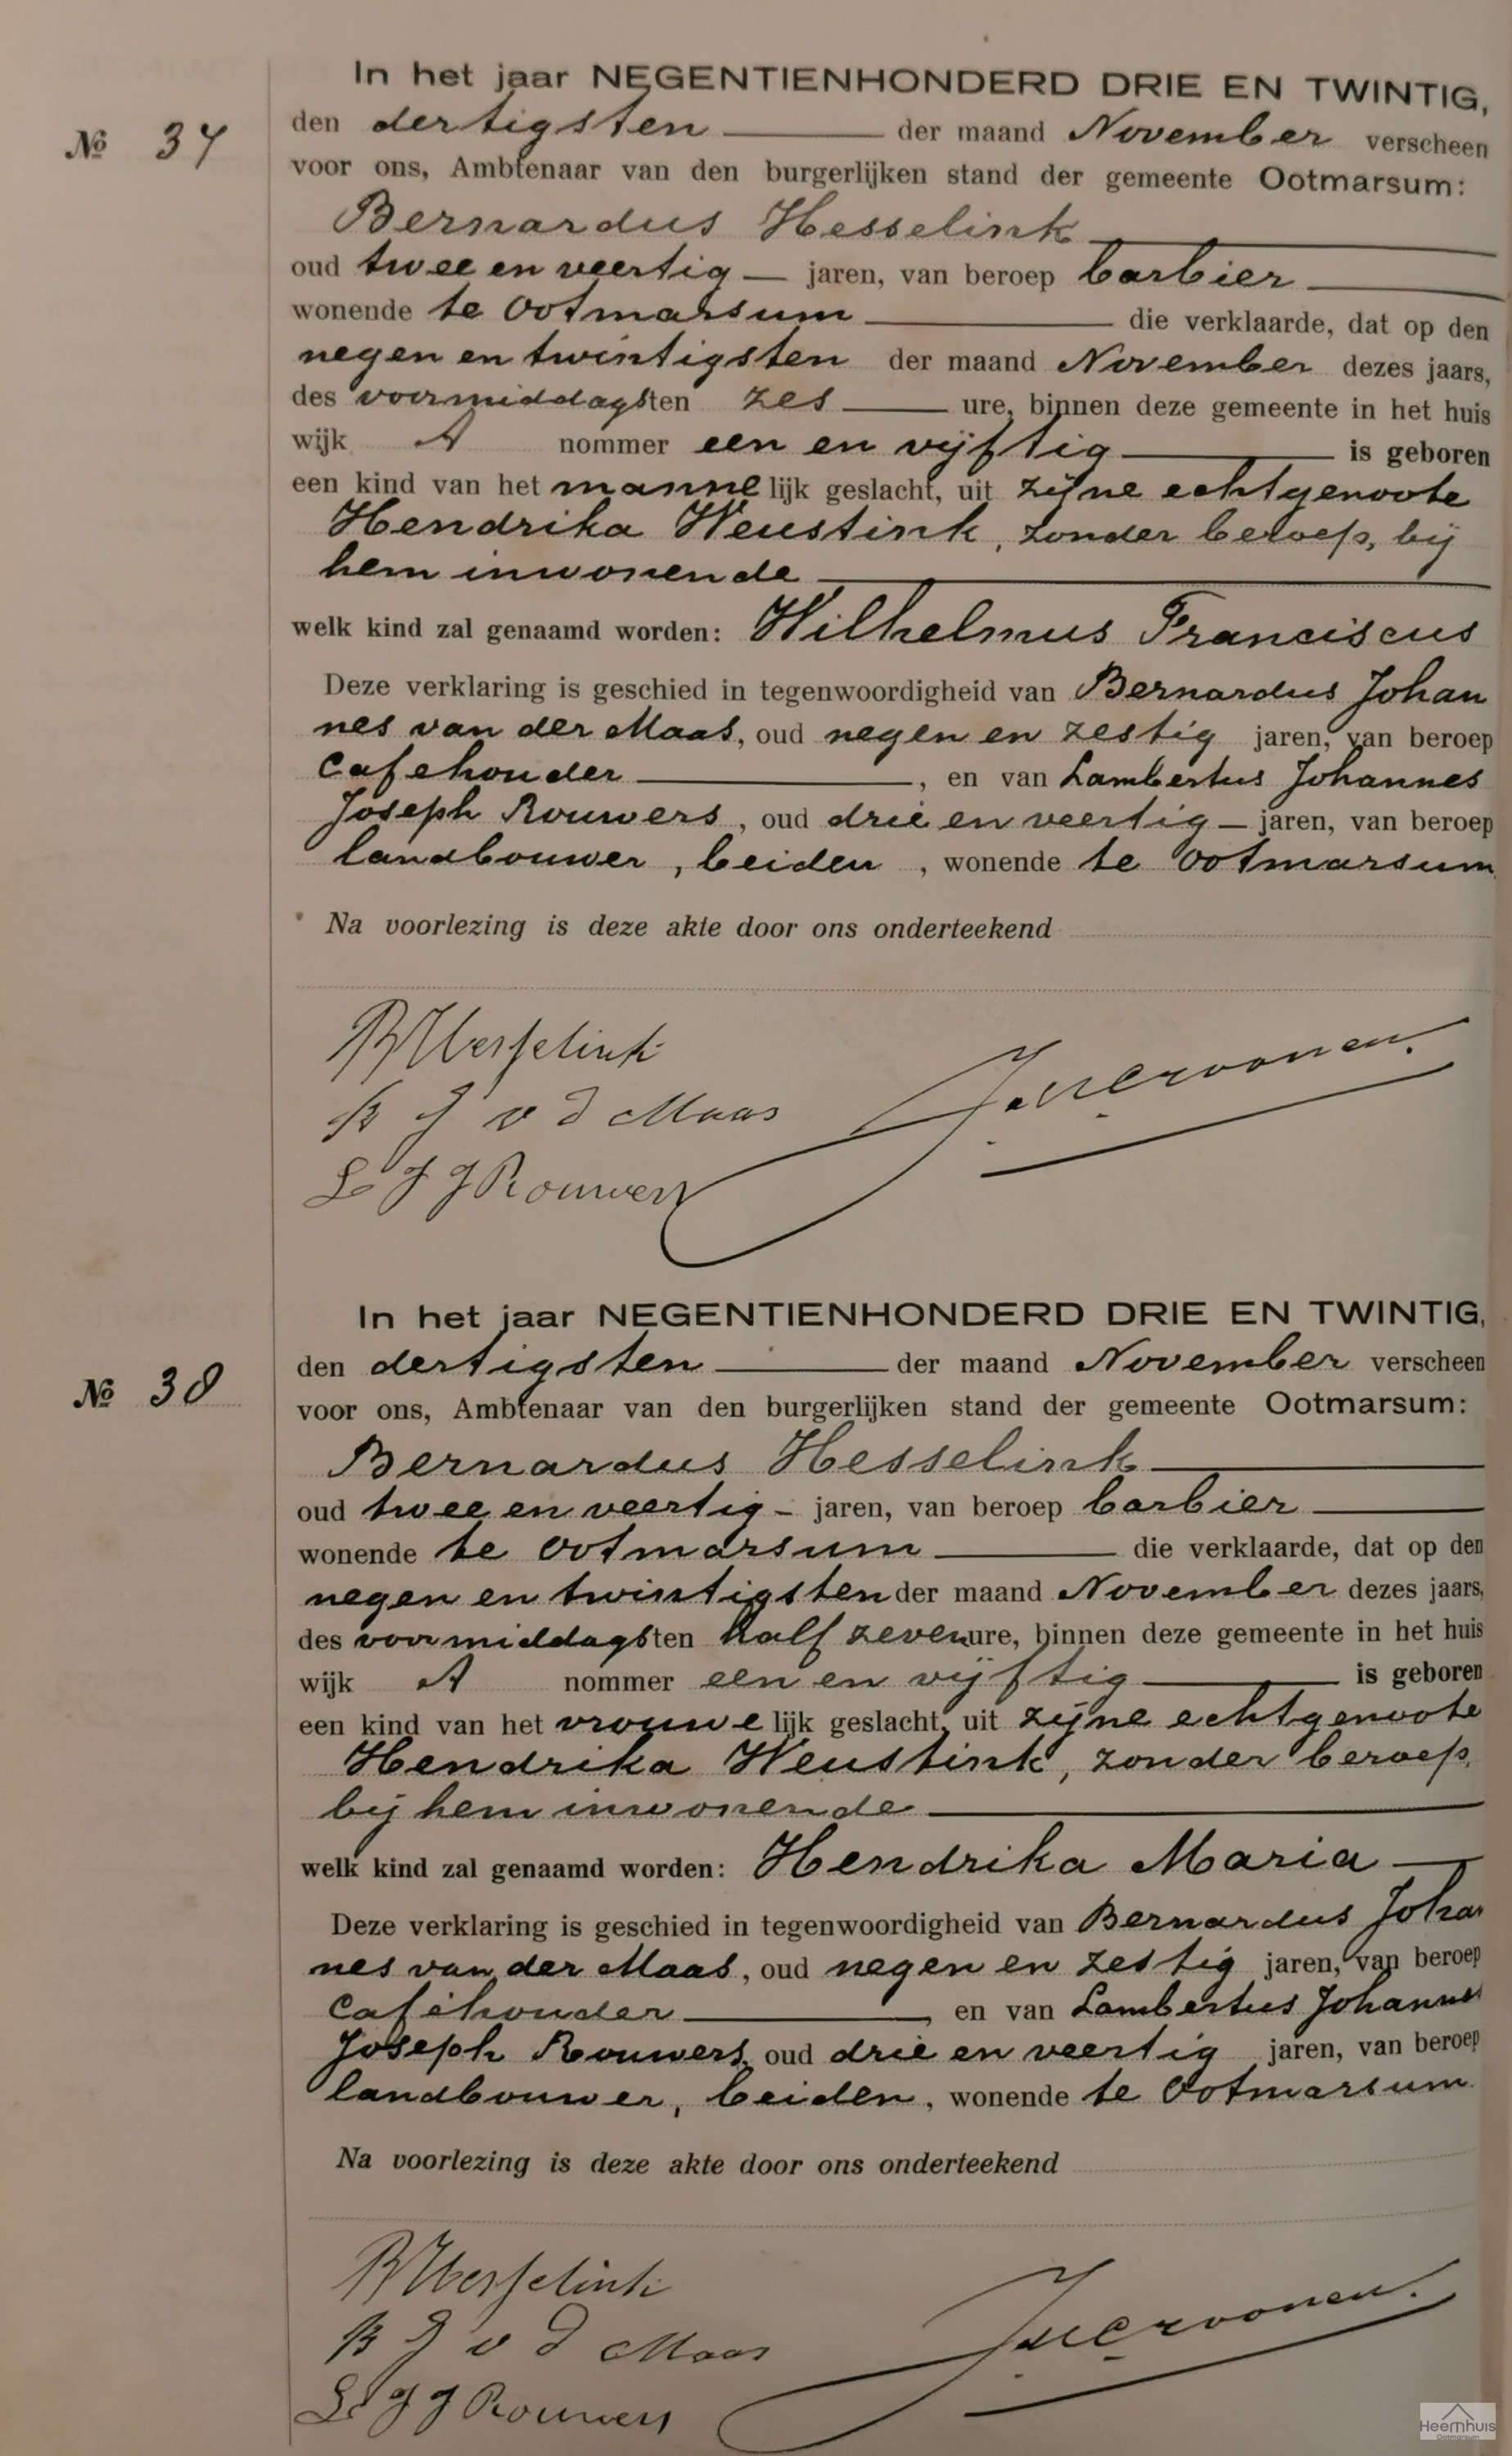 In het jaar NEGENTIENHONDERD DRIE EN TWINTIG,
No 37 den dertigsten der maand November verscheen
voor ons, Ambtenaar van den burgerlijken stand der gemeente Ootmarsum:
Bernardus Hesselink
oud twee en veertig jaren, van beroep barbier
wonende te Ootmarsum die verklaarde, dat op den
negen en twintigsten der maand November dezes jaars,
des voormiddags ten zes ure, binnen deze gemeente in het huis
wijk A nommer een en vijftig is geboren
een kind van het mannelijk geslacht, uit zijne echtgenoote
Hendrika Weustink, zonder beroep, bij
hem inwonende
welk kind zal genaamd worden: Wilhelmus Franciscus
Deze verklaring is geschied in tegenwoordigheid van Bernardus Johan
nes van der Maas, oud negen en zestig jaren, van beroep
cafehouder, en van Lambertus Johannes
Joseph Rouwers, oud drie en veertig jaren, van beroep
landbouwer, beiden, wonende te Ootmarsum
Na voorlezing is deze akte door ons onderteekend
B Hesselink
B J v d Maas
L J J Rouwers
In het jaar NEGENTIENHONDERD DRIE EN TWINTIG,
No 38 den dertigsten der maand November verscheen
voor ons, Ambtenaar van den burgerlijken stand der gemeente Ootmarsum:
Bernardus Hesselink
oud twee en veertig - jaren, van beroep barbier
wonende te Ootmarsum die verklaarde, dat op den
negen en twintigsten der maand November dezes jaars,
des voormiddags ten half zeven ure, binnen deze gemeente in het huis
wijk A nommer een en vijftig is geboren
een kind van het vrouwelijk geslacht, uit zijne echtgenoote
Hendrika Weustink, zonder beroep,
bij hem inwonende
welk kind zal genaamd worden: Hendrika Maria
Deze verklaring is geschied in tegenwoordigheid van Bernardus Johan
nes van der Maas, oud negen en zestig jaren, van beroep
caféhouder, en van Lambertus Johannes
Joseph Rouwers, oud drie en veertig jaren, van beroep
landbouwer, beiden, wonende te Ootmarsum
Na voorlezing is deze akte door ons onderteekend
B Hesselink
B J v d Maas
L J J Rouwers
Heemhuis
Ootmarsum